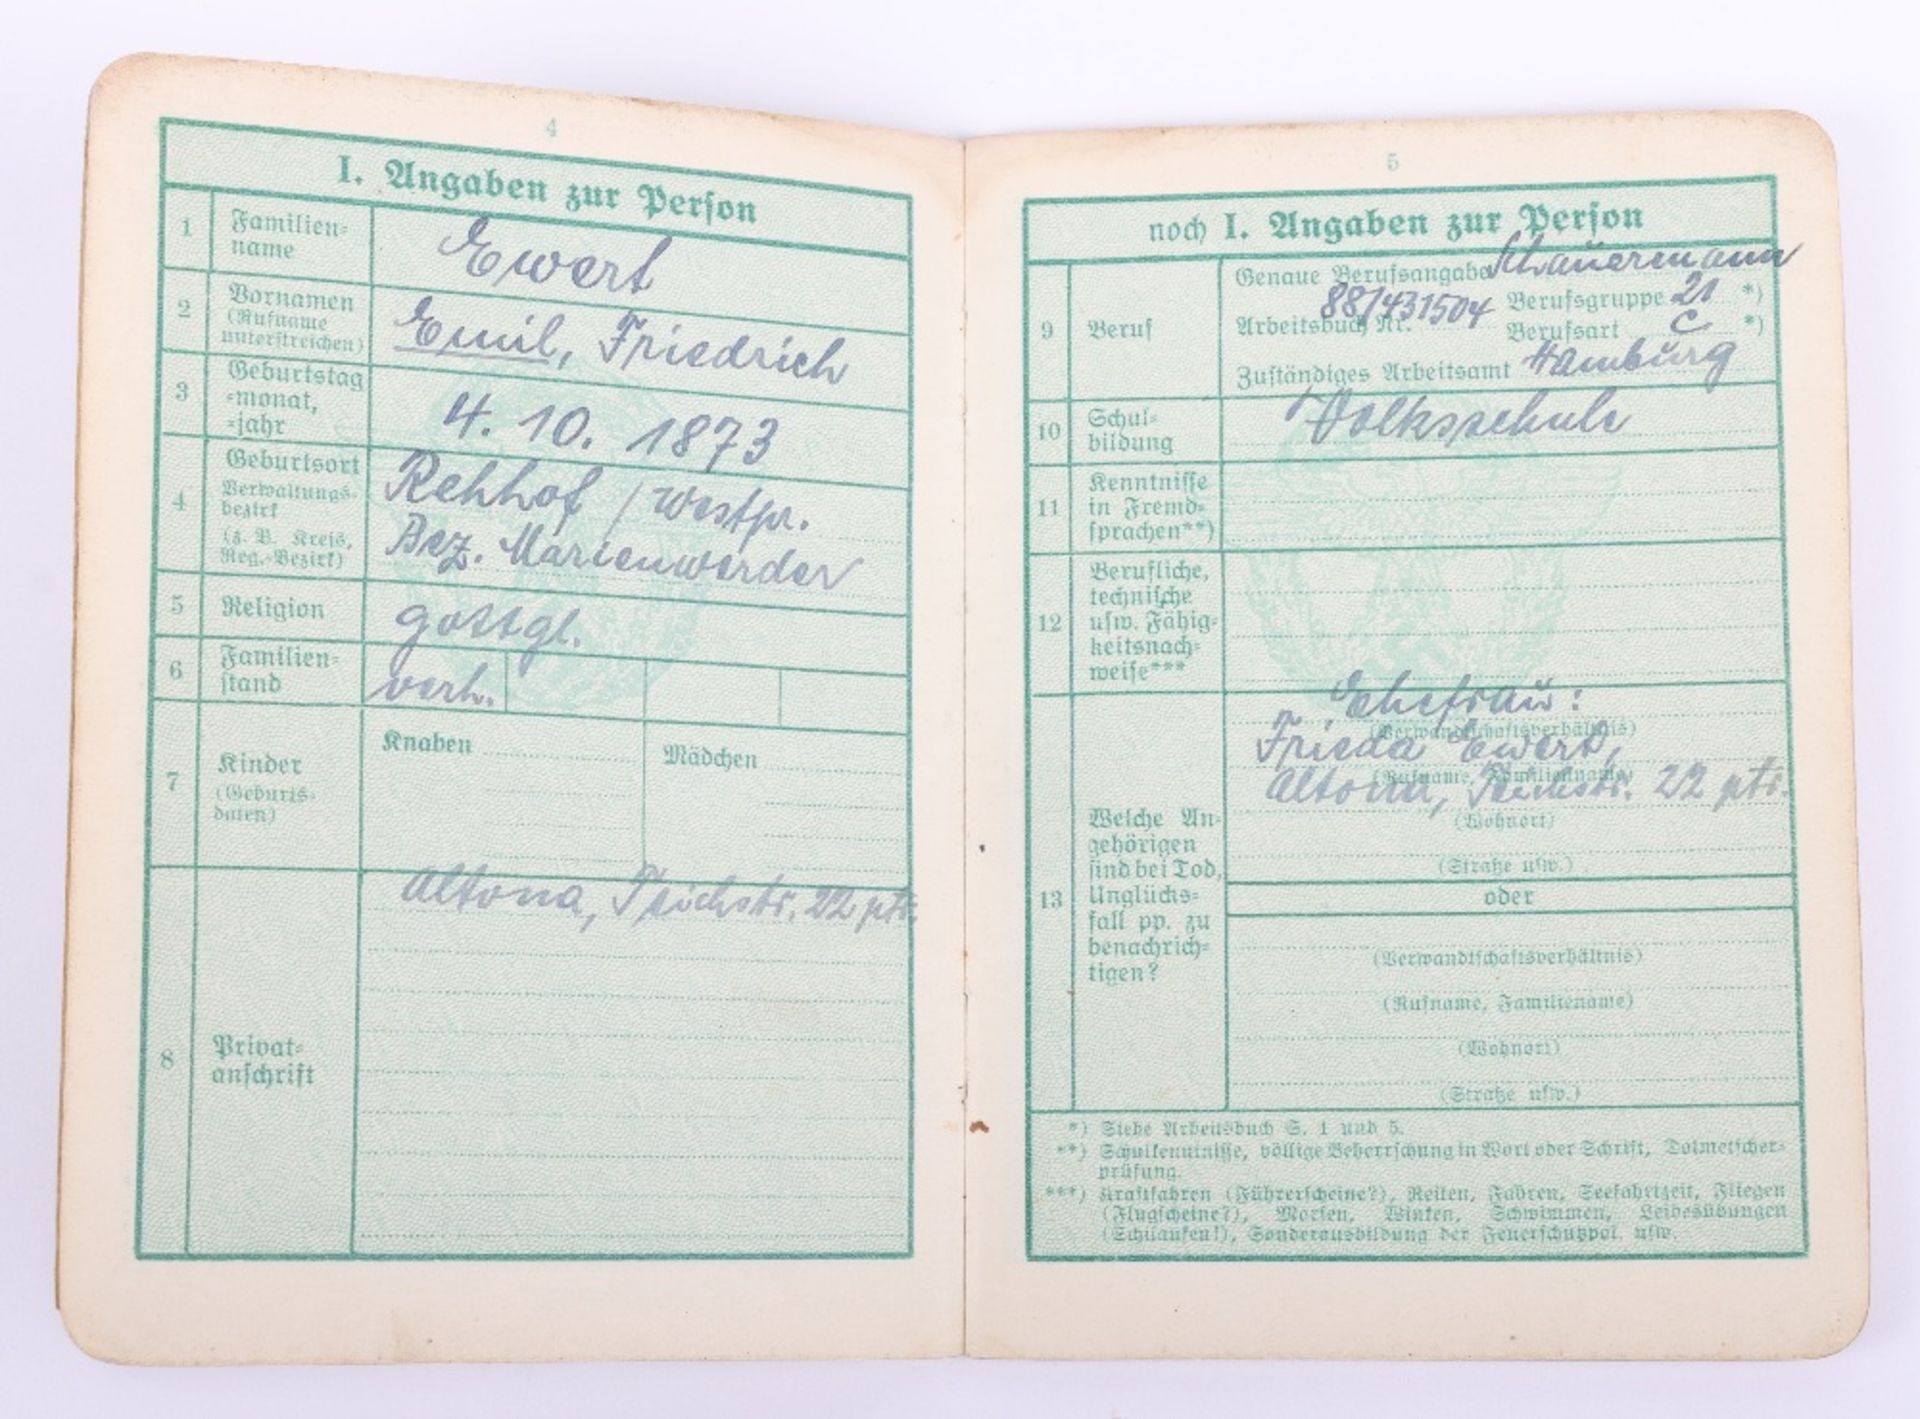 4
I. Angaben zur Person
1 Familien- name Ewert
2 Vornamen (Rufname unterstreichen) Emil, Friedrich
3 Geburtstag -monat, -jahr 4. 10. 1873
4 Geburtsort Verwaltungs- bezirk (z. B. Kreis, Reg.-Bezirk) Rehhof / Westpr.
Bez. Marienwerder
5 Religion gottgl.
6 Familien- stand verh.
7 Kinder (Geburts- daten) Knaben Mädchen
8 Privat- anschrift Altona, Teichstr. 22 ptr.
5
noch I. Angaben zur Person
9 Beruf
Genaue Berufsangabe Schauermann
Arbeitsbuch Nr. 88/431504 Berufsgruppe 21 *)
Berufsart c *)
Zuständiges Arbeitsamt Hamburg
10 Schul- bildung Volksschule
11 Kenntnisse in Fremd- sprachen**)
12 Berufliche, technische usw. Fähig- keitsnach- weise***
13 Welche An- gehörigen sind bei Tod, Unglücks- fall pp. zu benachrich- tigen?
Ehefrau:
(Verwandtschaftsverhältnis)
Frieda Ewert,
(Rufname, Familienname)
Altona, Teichstr. 22 ptr.
(Wohnort)
(Straße usw.)
oder
(Verwandtschaftsverhältnis)
(Rufname, Familienname)
(Wohnort)
(Straße usw.)
*) Siehe Arbeitsbuch S. 1 und 5.
**) Schulkenntnisse, völlige Beherrschung in Wort oder Schrift, Dolmetscher-
prüfung.
***) Kraftfahren (Führerscheine?), Reiten, Fahren, Seefahrtzeit, Fliegen
(Flugscheine?), Morsen, Winken, Schwimmen, Leibesübungen
(Schilaufen!), Sonderausbildung der Feuerschutzpol. usw.